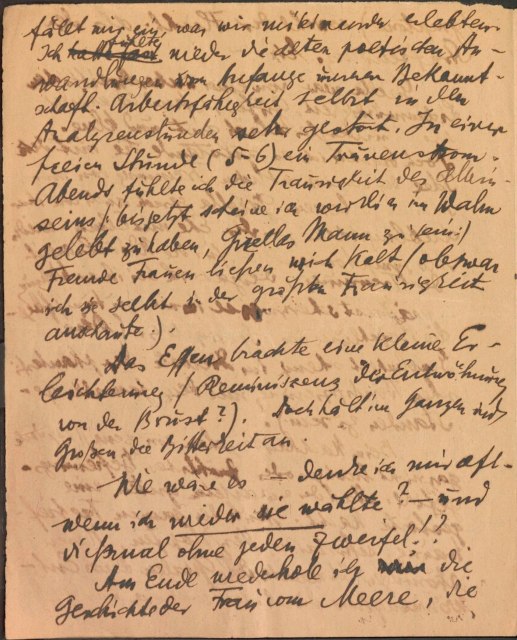 fällt mir ein, was wir miteinander erlebten.
Ich fühlte wieder die alten poetischen An-
wandlungen vom Anfange unserer Bekannt-
schaft. Arbeitsfähigkeit selbst in den
Analysenstunden sehr gestört. In einer
freien Stunde (5-6) ein Tränenstrom.
Abends fühlte ich die Traurigkeit des Allein-
seins (: bis jetzt scheine ich wirklich im Wahn
gelebt zu haben, Gizellas Mann zu sein:)
Fremde Frauen liessen mich kalt (obzwar
ich sie selbst in der größten Traurigkeit
anschaute.).
Das Essen brachte eine kleine Er-
leichterung (Reminiszenz der Entwöhnung
von der Brust?). Doch hält im Ganzen und
Großen die Bitterkeit an.
Wie wäre es – denke ich mir oft –
wenn ich wieder sie wählte? – und
diesmal ohne jeden Zweifel!?
Am Ende wiederhole ich die
Geschichte der Frau vom Meere, die